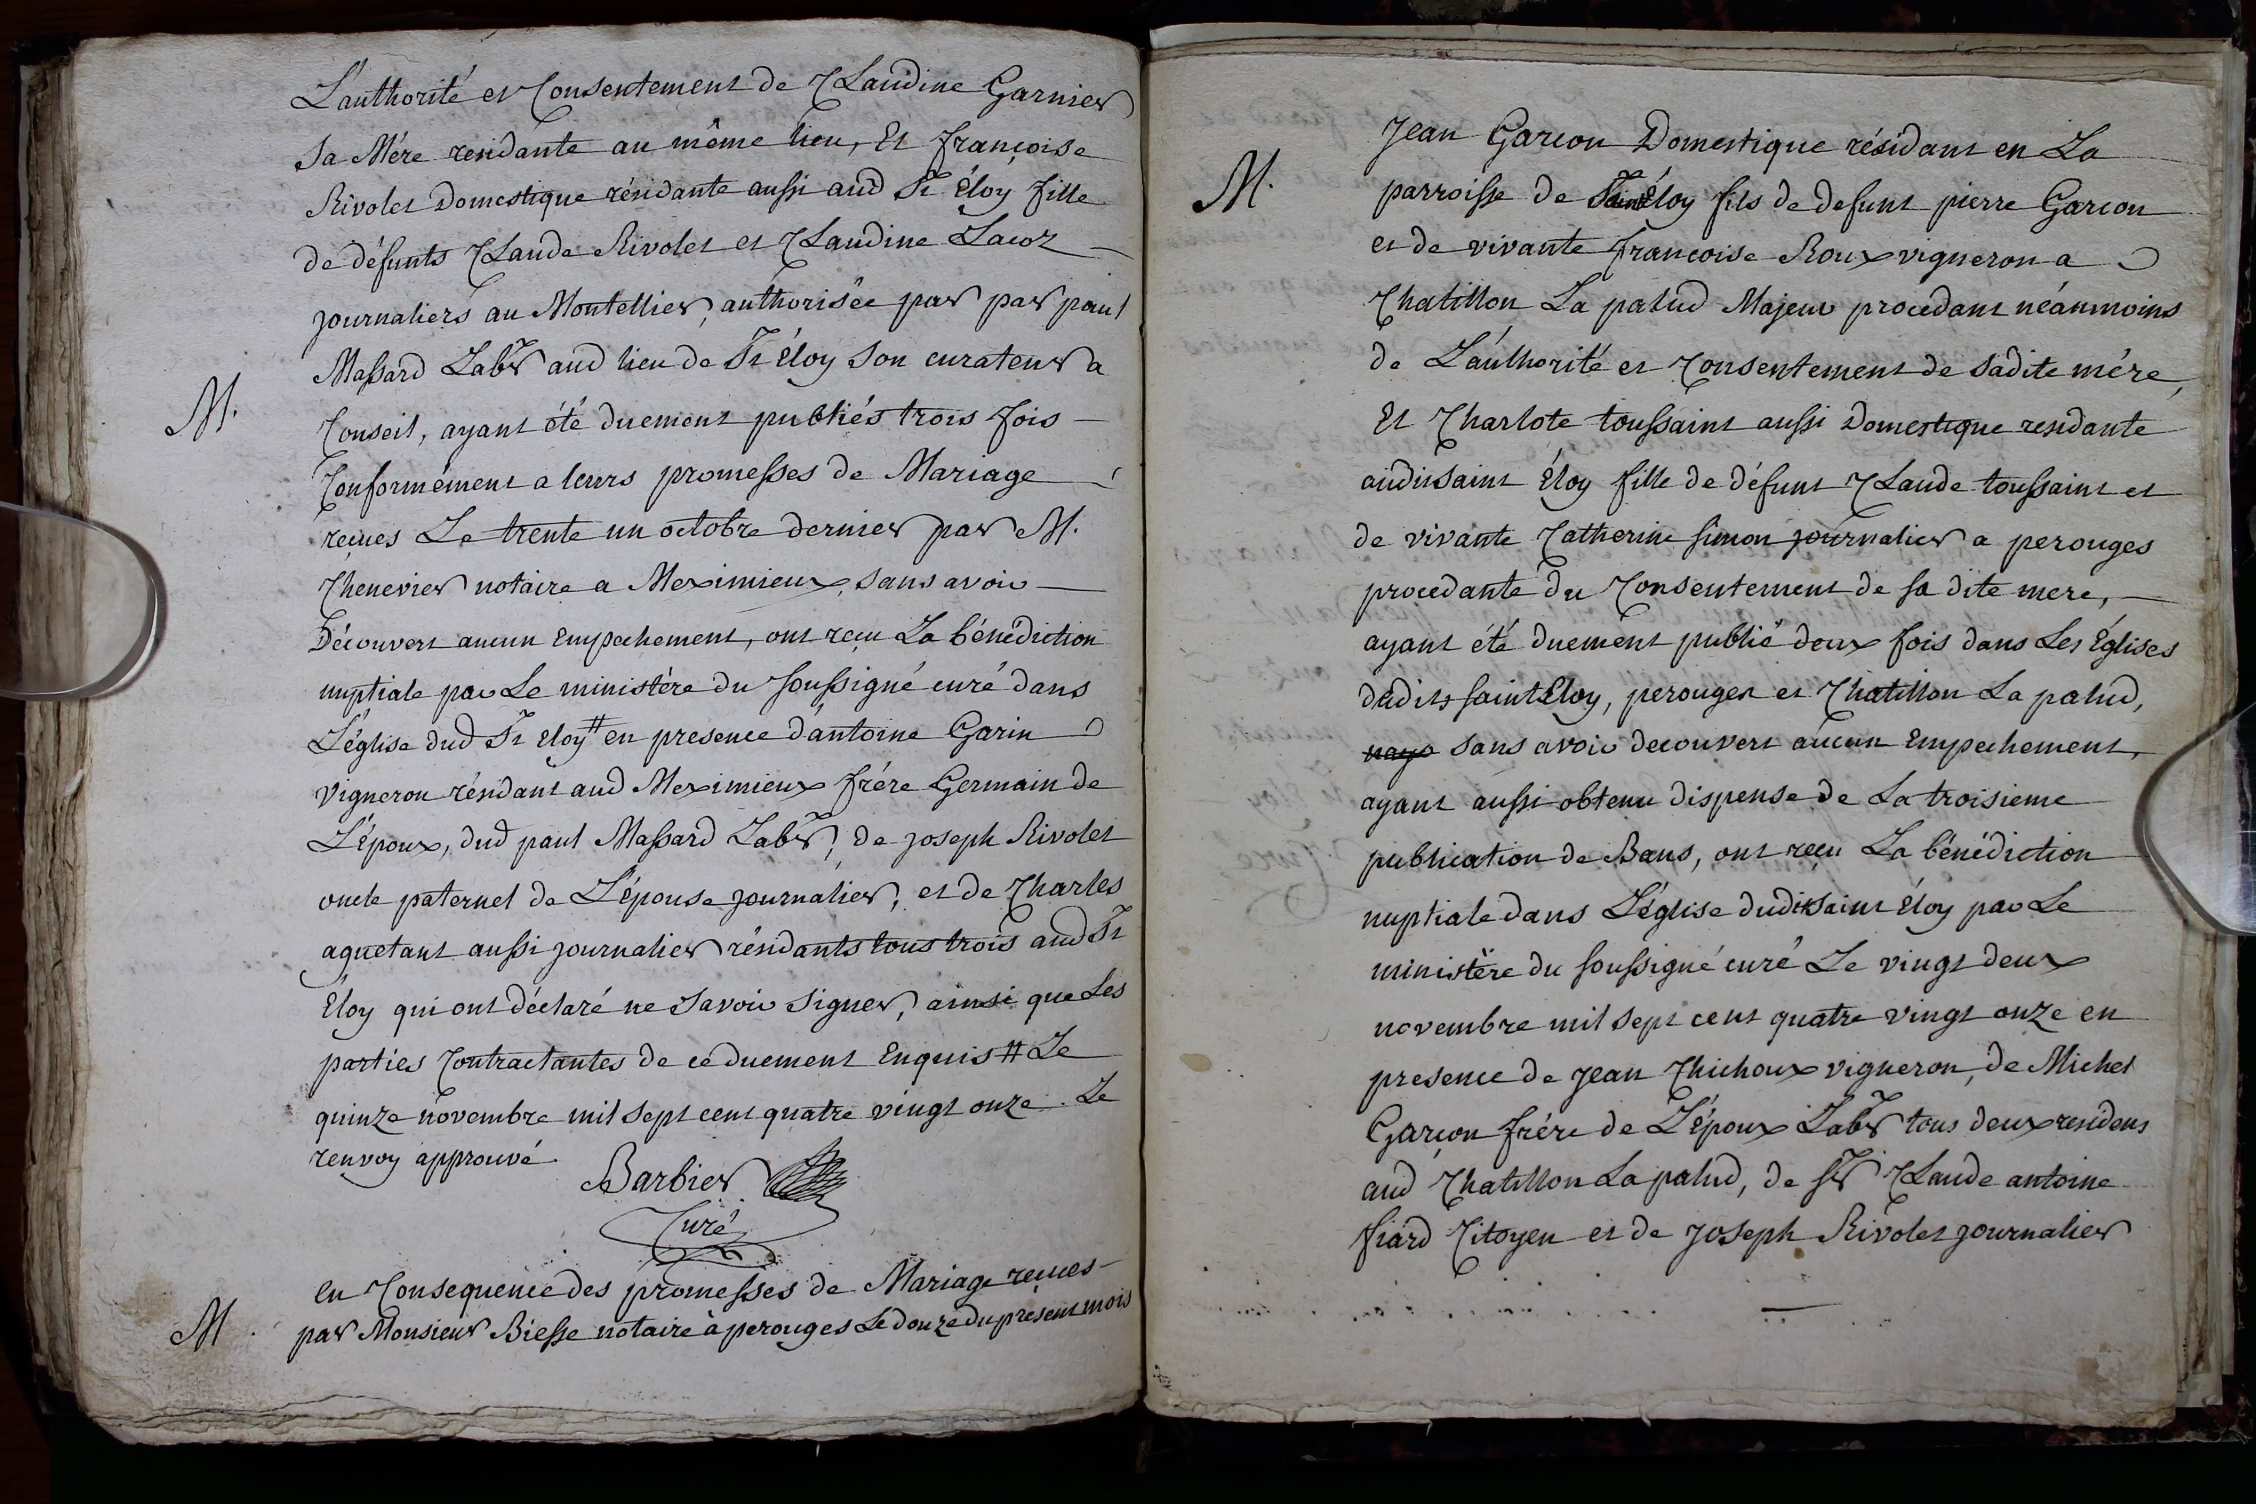 L'authorité et Consentement de Claudine Garnier
sa Mére residante au même lieu, Et françoise
Rivolet Domestique résidante aussi aud St Éloy fille
de défunts Claude Rivolet et Claudine Lacoz
journaliers au Montellier, authorisée par par paul
Massard Labr aud lieu de St Éloy son curateur a
M.
Conseil, ayant été duement publiés trois fois
Conformément a leurs promesses de Mariage
reçues Le trente un octobre dernier par M.
Chenevier notaire a Meximieux, sans avoir
Découvert aucun Empechement, ont reçu La bénédiction
nuptiale par Le ministère du soussigné curé dans
L'église dud St Eloy # en presence d'antoine Garin
vigneron résidant aud Meximieux frére Germain de
L'époux, dud paul Massard Labr, de joseph Rivolet
oncle paternel de L'épouse journalier, et de Charles
aquetant aussi journalier résidants tous trois aud St
Éloy qui ont déclaré ne savoir signer, ainsi que Les
parties Contractantes de ce duement Enquis # Le
quinze novembre mil sept cent quatre vingt onze. Le
renvoy approuvé
Barbier
Curé
En Consequence des promesses de Mariage reçues
M
par Monsieur Biesse notaire à perouges Le douze du présent mois
Jean Garcon Domestique résidant en La
M.
parroisse de Saint Éloy fils de defunt pierre Garcon
et de vivante francoise Roux vigneron a
Chatillon La palud Majeur procédant néanmoins
de L'aúthorité et Consentement de sadite mére,
Et Charlote toussaint aussi Domestique residante
audit saint Éloy fille de défunt Claude toussaint et
de vivante Catherine simon journalier a perouges
procedante du Consentement de sa dite mere,
ayant été duement publié deux fois dans Les Églises
dudits saint Eloy, perouges et Chatillon La palud,
sans avoir decouvert aucun Empechement,
ayant aussi obtenu dispense de La troisieme
publication de Bans, ont reçu La bénédiction
nuptiale dans L'église dudit saint Éloy par Le
ministère du soussigné curé Le vingt deux
novembre mil sept cent quatre vingt onze en
presence de Jean Chichoux vigneron, de Michel
Garcon frére de L'époux Labr tous deux residens
aud Chatillon La palud, de sr Claude antoine
fiard Citoyen et de Joseph Rivolet journalier